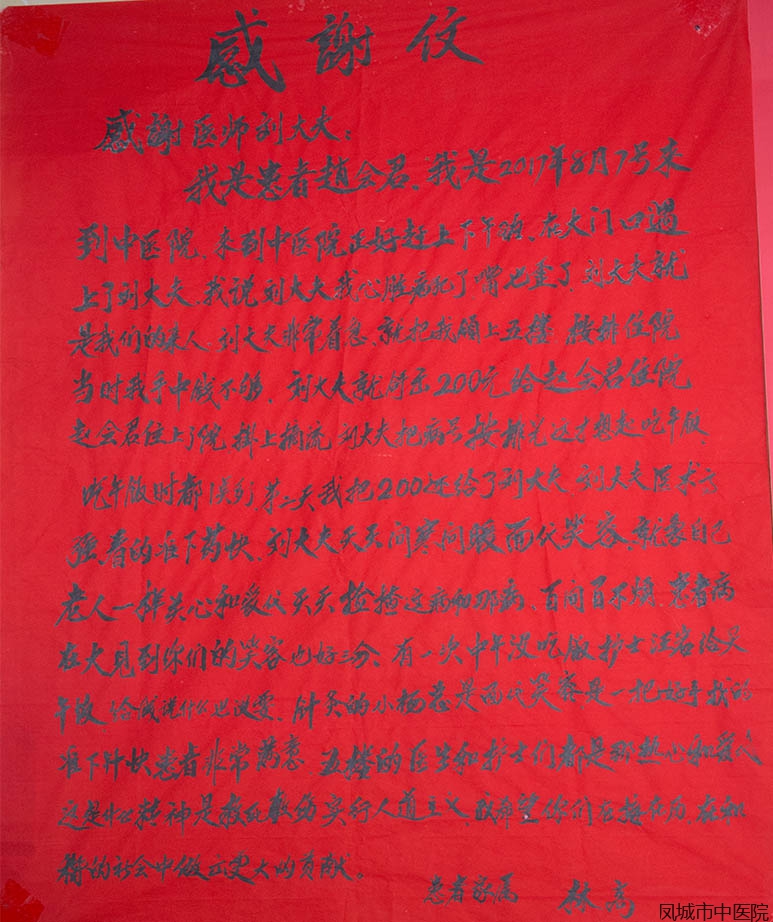 感謝伩
感謝医师刘大夫：
我是患者趙会君、我是2017年8月7号来
到中医院、来到中医院正好赶上下午班、在大门口遇
上了刘大夫、我说刘大夫我心脏病犯了嘴也歪了、刘大夫就
是我们的亲人、刘大夫非常着急、就把我领上五楼、按排住院
当时我手中钱不够、刘大夫就拿出200元给赵会君住院
赵会君住上了院掛上滴流刘大夫把病号按排完这才想起吃午饭、
吃午饭时都误了第二天我把200还给了刘大夫刘大夫医术高
强、看的准下药快、刘大夫天天问寒问暖面代笑容、就象自己
老人一样关心和爱仪天天检楂这病和那病、百问百不烦、患者病
在大見到你们的笑容也好三分、有一次中午没吃饭护士汪洺给买
午饭给钱说什么也没要、针灸的小杨总是面代笑容是一把好手找的
准下针快患者非常满意五楼的医生和护士们都是那热心和爱心
这是什么精神是救死救伤实行人道主义、我希望你们在接在厉、在和
谐的社会中做出更大的贡献。
患者家属 林彦
凤城市中医院